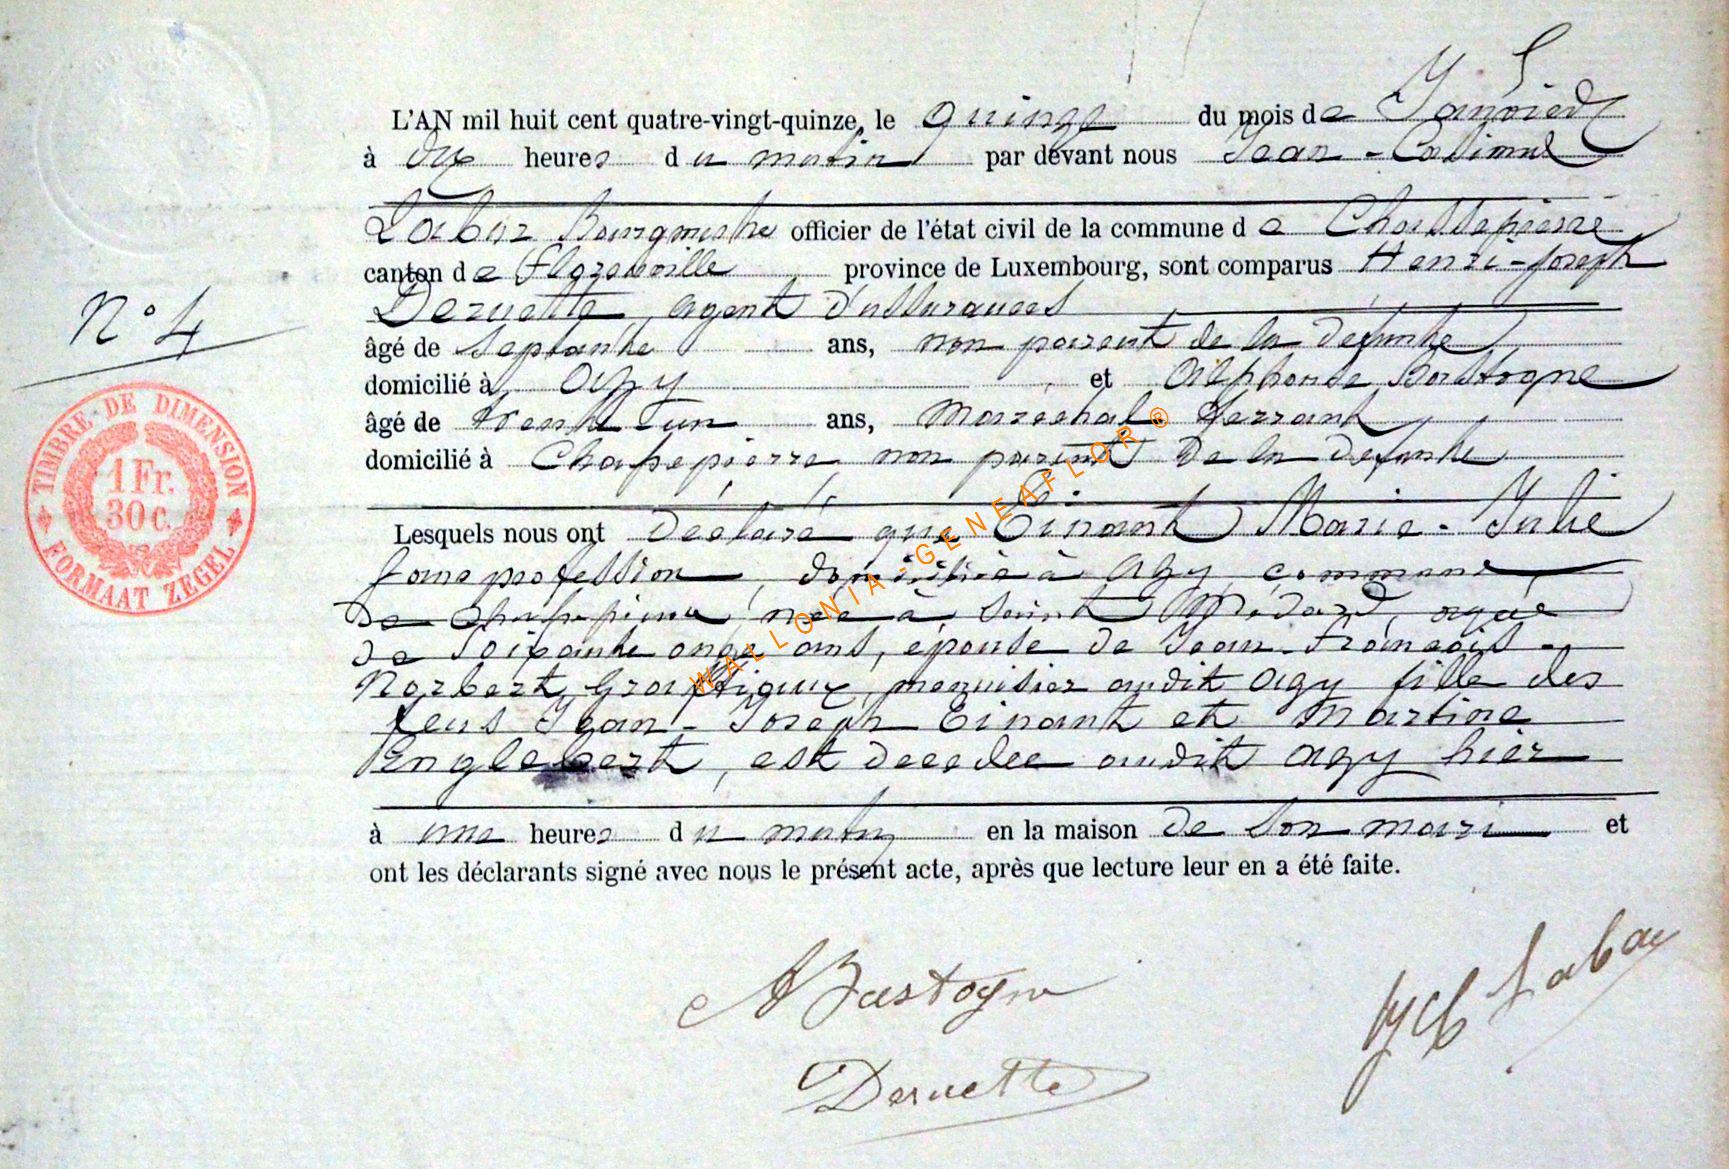 L'AN mil huit cent quatre-vingt-quinze, le quinze du mois de Janvier
à dix heures du matin par devant nous Jean-Casimir
Labar Bourgmestre officier de l'état civil de la commune de Chassepierre
canton de Florenville province de Luxembourg, sont comparus Henri-Joseph
Deruette, agent d'assurances
N° 4
âgé de Septante ans, non parent de la défunte
domicilié à Azy et Alphonse Bastogne
âgé de trente-un ans, Maréchal ferrant
domicilié à Chassepierre non parent de la défunte
TIMBRE DE DIMENSION
1 Fr.
30 c.
FORMAAT ZEGEL
Lesquels nous ont déclaré que Tinant Marie-Julie
sans profession, domiciliée à Azy, commune
de Chassepierre, née à Saint Médard, âgée
de soixante onze ans, épouse de Jean-François-
Norbert, menuisier audit Azy fille des
feus Jean-Joseph Tinant et Martine
Englebert, est décédée audit Azy hier
à une heures du matin en la maison de son mari et
ont les déclarants signé avec nous le présent acte, après que lecture leur en a été faite.
A Bastogne
JC Labar
Deruette
WALLONIA-GENEAFLOR ®